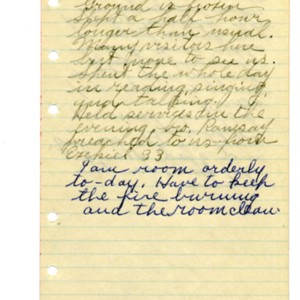 Ground is frozen
Spent a half hour
longer than usual.
Many visitors here
but none to see us.
Spent the whole day
in reading, singing
and talking.
Held services in the
evening, Mr. Ramsay
preached to us from
Ezekiel 33
I am room orderly
to-day. Have to keep
the fire burning
and the room clean